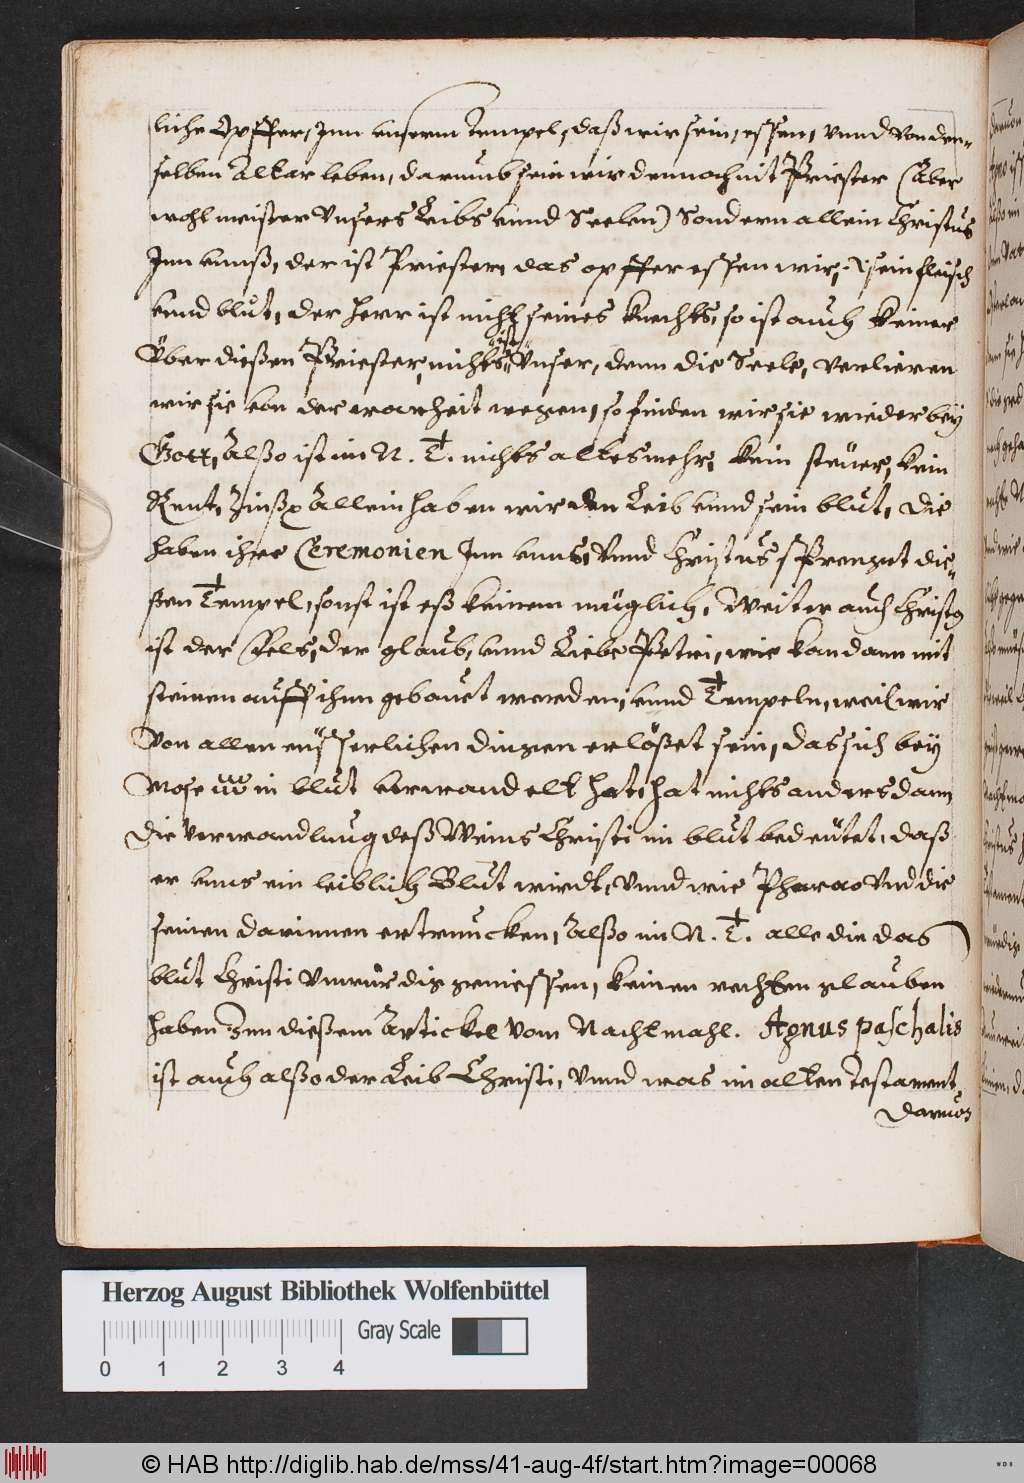 liche Opffer, Jnn unserm Tempel, daß wir sein, essen, unnd von den-
selben Altar leben, darumb sein wir dennoch nit Priester (Aber
wohl meister Unsers Leibs unnd Seelen) Sondern allein Christus
Jnn unnß, der ist Priester, das opffer essen wir, sein fleisch
unnd blut, der Herr ist nicht seines Knechts, so ist auch keiner
Über dießen Priester, nichts ist Unser, denn die Seele, verlieren
wir sie von der warheit wegen, so finden wir sie wieder bey
Gott, Alßo ist im N. T. nichts altes mehr, kein steuer, kein
Rent, Zinß Allein haben wir den Leib unnd sein blut, die
haben ihre Ceremonien Jnn unns, Unnd Christus sprenget die-
ßen Tempel, sonst ist eß keinem müglich, Weiter auch Christus
ist der Fels, der glaub, unnd Liebe Petri, wie kan dann mit
steinen auff ihnn gebauet werden, unnd Tempeln, weil wir
Von allen eusserlichen dingen erlößet sein, das sich bey
Mose in blut verwandelt hat, hat nichts anders dann
die Verwandlung deß Weins Christi im blut bedeutet, daß
er unns ein leiblich Blut wirdt, Unnd wie Pharao Und die
seinen darinnen ertruncken, Alßo im N. T. alle die das
blut Christi Unwürdig geniessen, keinen rechten glauben
haben Jnn dießem Artickel vom Nachtmahl. Agnus paschalis
ist auch alßo der Leib Christi, Unnd was im alten Testament
Herzog August Bibliothek Wolfenbüttel
Gray Scale
0 1 2 3 4
© HAB http://diglib.hab.de/mss/41-aug-4f/start.htm?image=00068